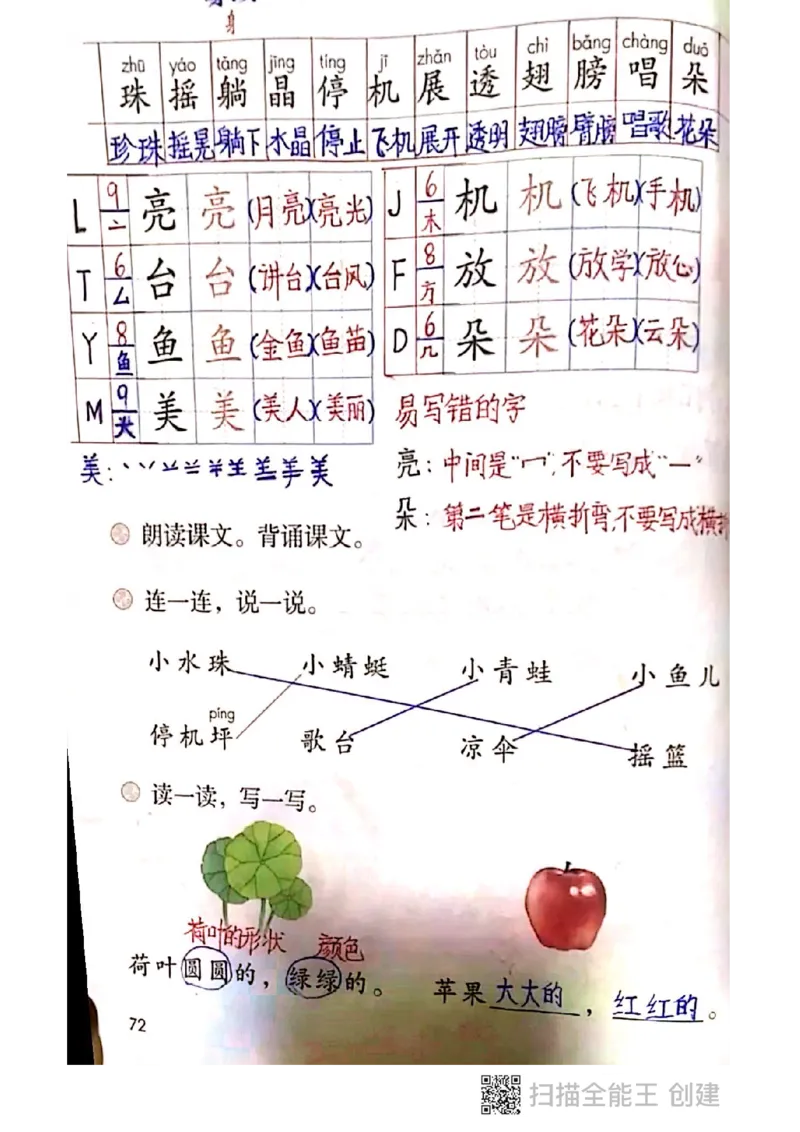 身
zhū yáo tǎng jīng tíng jī zhǎn tòu chì bǎng chàng duǒ
珠 摇 躺 晶 停 机 展 透 翅 膀 唱 朵
珍珠 摇晃 躺下 水晶 停止 飞机 展开 透明 翅膀 臂膀 唱歌 花朵
L 9 亠 亮 亮 (月亮)(亮光) J 6 木 机 机 (飞机)(手机)
T 6 厶 台 台 (讲台)(台风) F 8 方 放 放 (放学)(放心)
Y 8 鱼 鱼 鱼 (金鱼)(鱼苗) D 6 几 朵 朵 (花朵)(云朵)
M 9 美 美 (美人)(美丽)
易写错的字
亮：中间是“冖”，不要写成“一”
美：
朵：第二笔是横折弯，不要写成横折
朗读课文。背诵课文。
连一连，说一说。
小水珠 小蜻蜓 小青蛙 小鱼儿
píng
停机坪 歌台 凉伞 摇篮
读一读，写一写。
荷叶的形状 颜色
荷叶圆圆的，绿绿的。
苹果大大的，红红的。
72
扫描全能王 创建